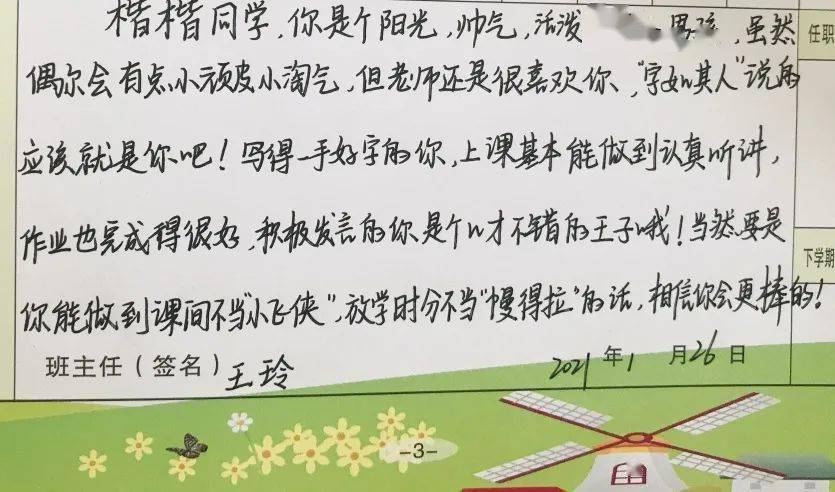 楷楷同学，你是个阳光，帅气，活泼 男孩，虽然
任职
偶尔会有点小顽皮小淘气，但老师还是很喜欢你、“字如其人”说的
应该就是你吧！写得一手好字的你，上课基本能做到认真听讲，
作业也完成得很好，积极发言的你是个口才不错的王子哦！当然要是
下学期
你能做到课间不当“小飞侠”，放学时分不当“慢得拉”的话，相信你会更棒的！
班主任（签名）王玲 2021年1月26日
-3-